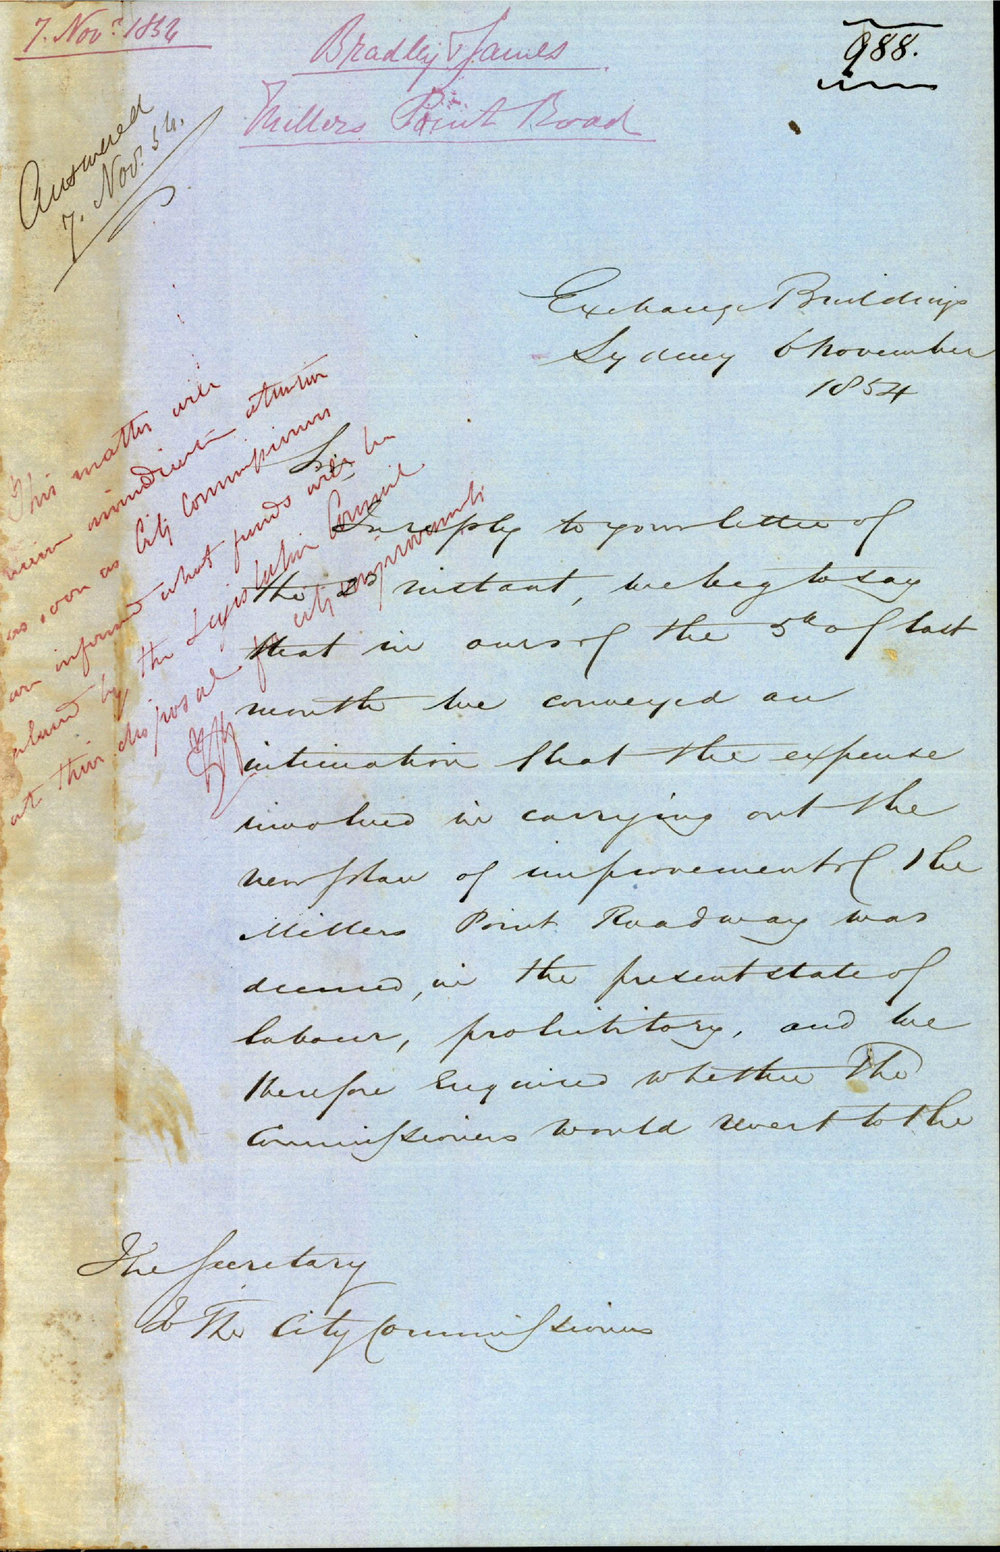 7. Novr. 1854
Bradley & James
Millers Point Road
988.
Answered
7. Nov. 54.
Exchange Buildings
Sydney 6 November
1854
This matter will
immediate attention
as soon as City Commissioners
are informed what funds will be
placed by the Legislative Council
at their disposal for city improvements
Sir
In reply to your letter of
the 2d instant, we beg to say
that in ours of the 5th of last
month we conveyed an
intimation that the expense
involved in carrying out the
new plan of improvement of the
Millers Point Roadway was
deemed, in the present state of
labour, prohibitory, and we
therefore enquired whether The
Commissioners would revert to the
The Secretary
To The City Commissioners